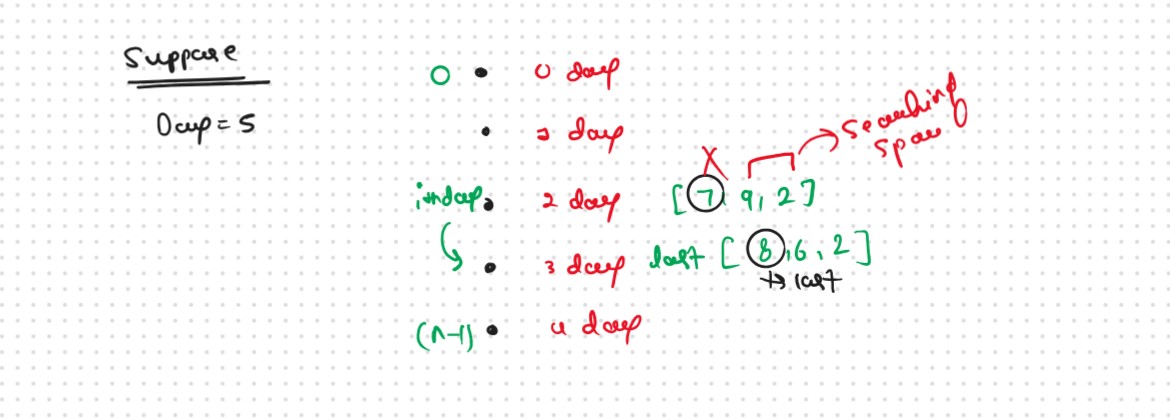 Suppose
Day = 5
0 • 0 day
• 1 day
ith day • 2 day [7, 9, 2] → Searching
Space
• 3 day last [8, 6, 2]
↳ last
(n-1) • 4 day